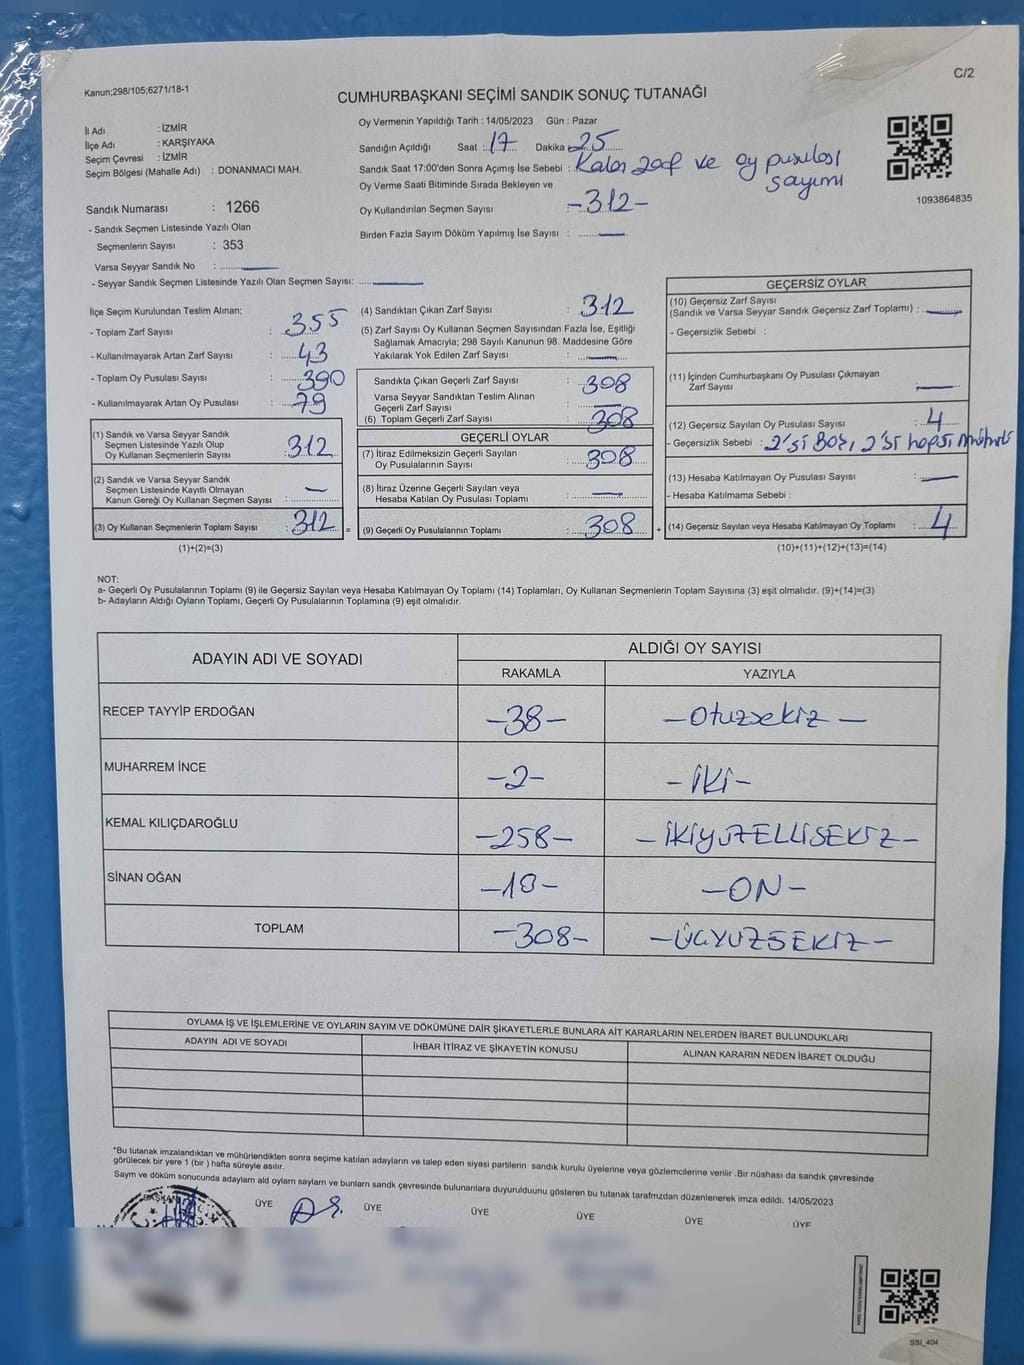 C/2
Kanun;298/105;6271/18-1
CUMHURBAŞKANI SEÇİMİ SANDIK SONUÇ TUTANAĞI
İl Adı : İZMİR
İlçe Adı : KARŞIYAKA
Seçim Çevresi : İZMİR
Seçim Bölgesi (Mahalle Adı) : DONANMACI MAH.
Sandık Numarası : 1266
- Sandık Seçmen Listesinde Yazılı Olan
Seçmenlerin Sayısı : 353
Varsa Seyyar Sandık No :
- Seyyar Sandık Seçmen Listesinde Yazılı Olan Seçmen Sayısı:
Oy Vermenin Yapıldığı Tarih : 14/05/2023 Gün : Pazar
Sandığın Açıldığı Saat : 17 Dakika 25
Sandık Saat 17:00'den Sonra Açımış İse Sebebi : Kalan zarf ve oy pusulası sayımı
Oy Verme Saati Bitiminde Sırada Bekleyen ve
Oy Kullandırılan Seçmen Sayısı -312-
Birden Fazla Sayım Döküm Yapılmış İse Sayısı :
1093864835
İlçe Seçim Kurulundan Teslim Alınan;
- Toplam Zarf Sayısı : 355
- Kullanılmayarak Artan Zarf Sayısı : 43
- Toplam Oy Pusulası Sayısı : 390
- Kullanılmayarak Artan Oy Pusulası : 79
(1) Sandık ve Varsa Seyyar Sandık
Seçmen Listesinde Yazılı Olup
Oy Kullanan Seçmenlerin Sayısı : 312
(2) Sandık ve Varsa Seyyar Sandık
Seçmen Listesinde Kayıtlı Olmayan
Kanun Gereği Oy Kullanan Seçmen Sayısı : –
(3) Oy Kullanan Seçmenlerin Toplam Sayısı : 312 =
(1)+(2)=(3)
(4) Sandıktan Çıkan Zarf Sayısı : 312
(5) Zarf Sayısı Oy Kullanan Seçmen Sayısından Fazla İse, Eşitliği
Sağlamak Amacıyla; 298 Sayılı Kanunun 98. Maddesine Göre
Yakılarak Yok Edilen Zarf Sayısı :
Sandıkta Çıkan Geçerli Zarf Sayısı : 308
Varsa Seyyar Sandıktan Teslim Alınan
Geçerli Zarf Sayısı :
(6) Toplam Geçerli Zarf Sayısı : 308
GEÇERLİ OYLAR
(7) İtiraz Edilmeksizin Geçerli Sayılan
Oy Pusulalarının Sayısı : 308
(8) İtiraz Üzerine Geçerli Sayılan veya
Hesaba Katılan Oy Pusulası Toplamı :
(9) Geçerli Oy Pusulalarının Toplamı : 308 +
GEÇERSİZ OYLAR
(10) Geçersiz Zarf Sayısı
(Sandık ve Varsa Seyyar Sandık Geçersiz Zarf Toplamı) :
- Geçersizlik Sebebi :
(11) İçinden Cumhurbaşkanı Oy Pusulası Çıkmayan
Zarf Sayısı
(12) Geçersiz Sayılan Oy Pusulası Sayısı : 4
- Geçersizlik Sebebi : 2'si Boş, 2'si hepsi mühürlü
(13) Hesaba Katılmayan Oy Pusulası Sayısı :
- Hesaba Katılmama Sebebi :
(14) Geçersiz Sayılan veya Hesaba Katılmayan Oy Toplamı : 4
(10)+(11)+(12)+(13)=(14)
NOT:
a- Geçerli Oy Pusulalarının Toplamı (9) ile Geçersiz Sayılan veya Hesaba Katılmayan Oy Toplamı (14) Toplamları, Oy Kullanan Seçmenlerin Toplam Sayısına (3) eşit olmalıdır. (9)+(14)=(3)
b- Adayların Aldığı Oyların Toplamı, Geçerli Oy Pusulalarının Toplamına (9) eşit olmalıdır.
ADAYIN ADI VE SOYADI ALDIĞI OY SAYISI
RAKAMLA YAZIYLA
RECEP TAYYİP ERDOĞAN -38- -Otuzsekiz-
MUHARREM İNCE -2- -İKİ-
KEMAL KILIÇDAROĞLU -258- -İKİYÜZELLİSEKİZ-
SİNAN OĞAN -10- -ON-
TOPLAM -308- -ÜÇYÜZSEKİZ-
OYLAMA İŞ VE İŞLEMLERİNE VE OYLARIN SAYIM VE DÖKÜMÜNE DAİR ŞİKAYETLERLE BUNLARA AİT KARARLARIN NELERDEN İBARET BULUNDUKLARI
ADAYIN ADI VE SOYADI İHBAR İTİRAZ VE ŞİKAYETİN KONUSU ALINAN KARARIN NEDEN İBARET OLDUĞU
*Bu tutanak imzalandıktan ve mühürlendikten sonra seçime katılan adayların ve talep eden siyasi partilerin sandık kurulu üyelerine veya gözlemcilerine verilir .Bir nüshası da sandık çevresinde
görülecek bir yere 1 (bir ) hafta süreyle asılır.
Sayım ve döküm sonucunda adayların ald oyların sayların ve bunların sandk çevresinde bulunanlara duyurulduunu gösteren bu tutanak tarafmzdan düzenlenerek imza edildi. 14/05/2023
BAŞKAN ÜYE ÜYE ÜYE ÜYE ÜYE ÜYE
SSI_404